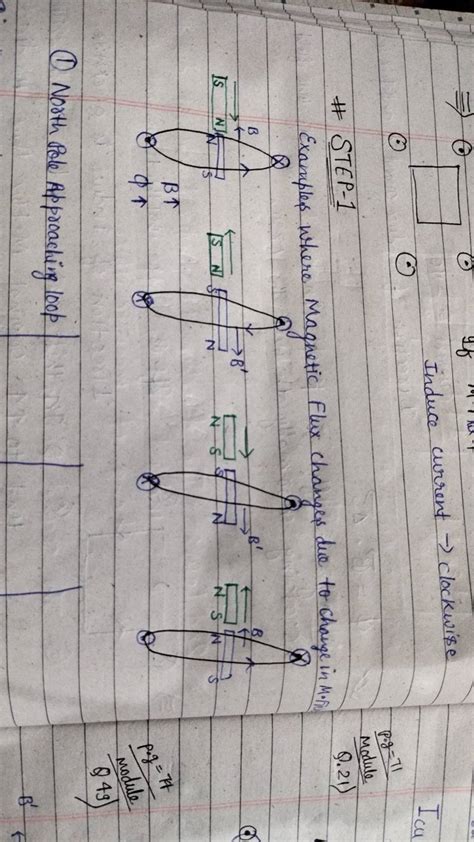 Induce current → clockwise
# STEP-1
Examples where Magnetic Flux changes due to change in M.F
S N
B
N S
B ↑
Φ ↑
S N
S N
B'
N S
S N
B'
N S
B
N S
① North Pole Approaching loop
p.g = 71
Module
Q.21)
p.g = 74
Module
Q.49)
B'